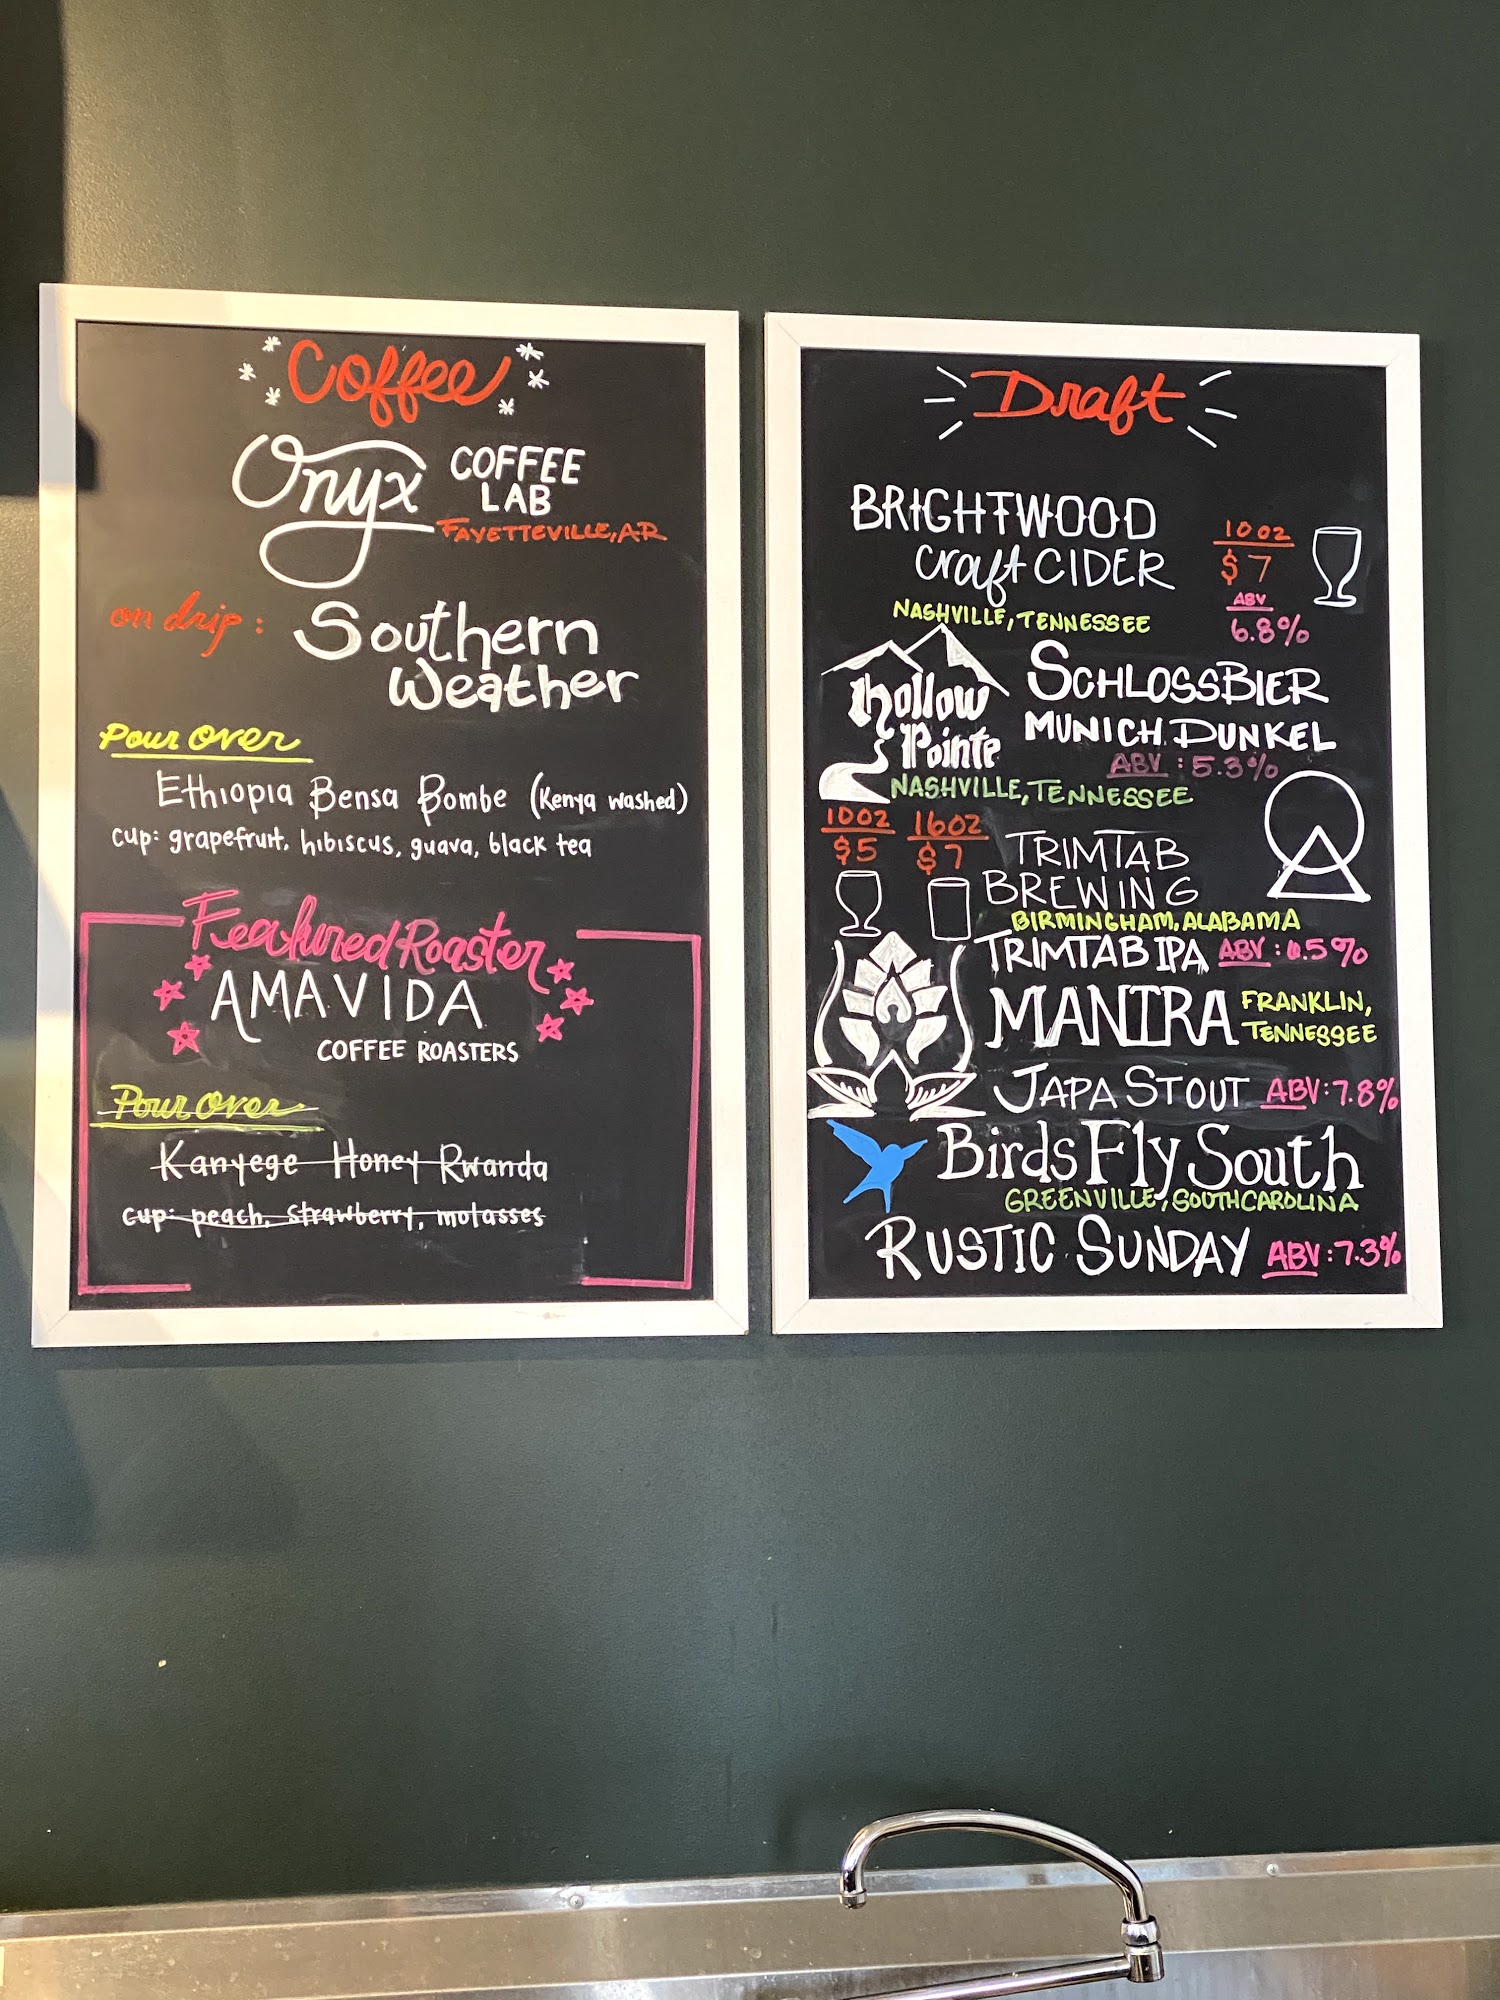 Coffee
Onyx COFFEE
LAB
FAYETTEVILLE, AR
on drip: Southern
Weather
Pour Over
Ethiopia Bensa Bombe (Kenya washed)
cup: grapefruit, hibiscus, guava, black tea
Featured Roaster
AMAVIDA
COFFEE ROASTERS
Pour Over
Kanyege Honey Rwanda
cup: peach, strawberry, molasses
Draft
BRIGHTWOOD
craft CIDER
NASHVILLE, TENNESSEE
10 oz
$7
ABV
6.8%
hollow
Pointe
SCHLOSSBIER
MUNICH DUNKEL
ABV: 5.3%
NASHVILLE, TENNESSEE
10OZ 16OZ
$5 $7
TRIMTAB
BREWING
BIRMINGHAM, ALABAMA
TRIMTAB IPA ABV: 6.5%
MANTRA FRANKLIN,
TENNESSEE
JAPA STOUT ABV: 7.8%
Birds Fly South
GREENVILLE, SOUTH CAROLINA
RUSTIC SUNDAY ABV: 7.3%